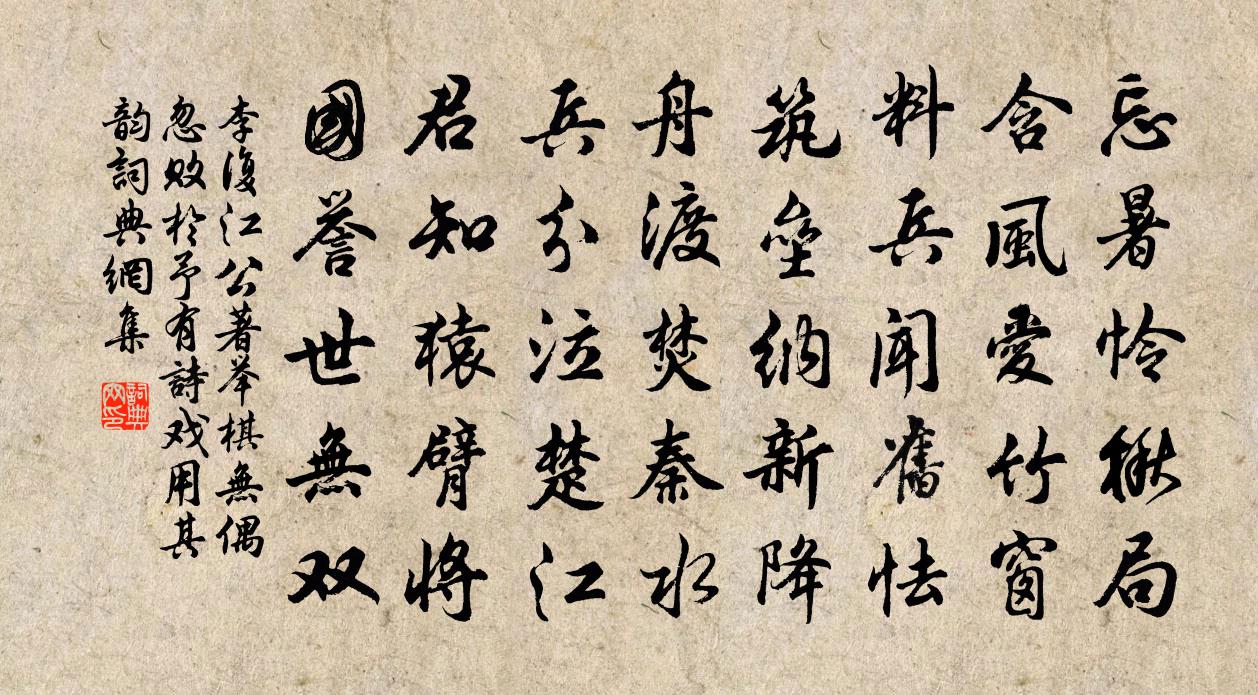 忘暑怜楸局
含風愛竹窗
料兵聞舊怯
筑壘納新降
舟渡焚秦水
兵分泣楚江
君知猿臂將
國誉世無双
李復江公著举棋無偶
忽敗於予有詩戏用其
韵詞典網集
詞典網印